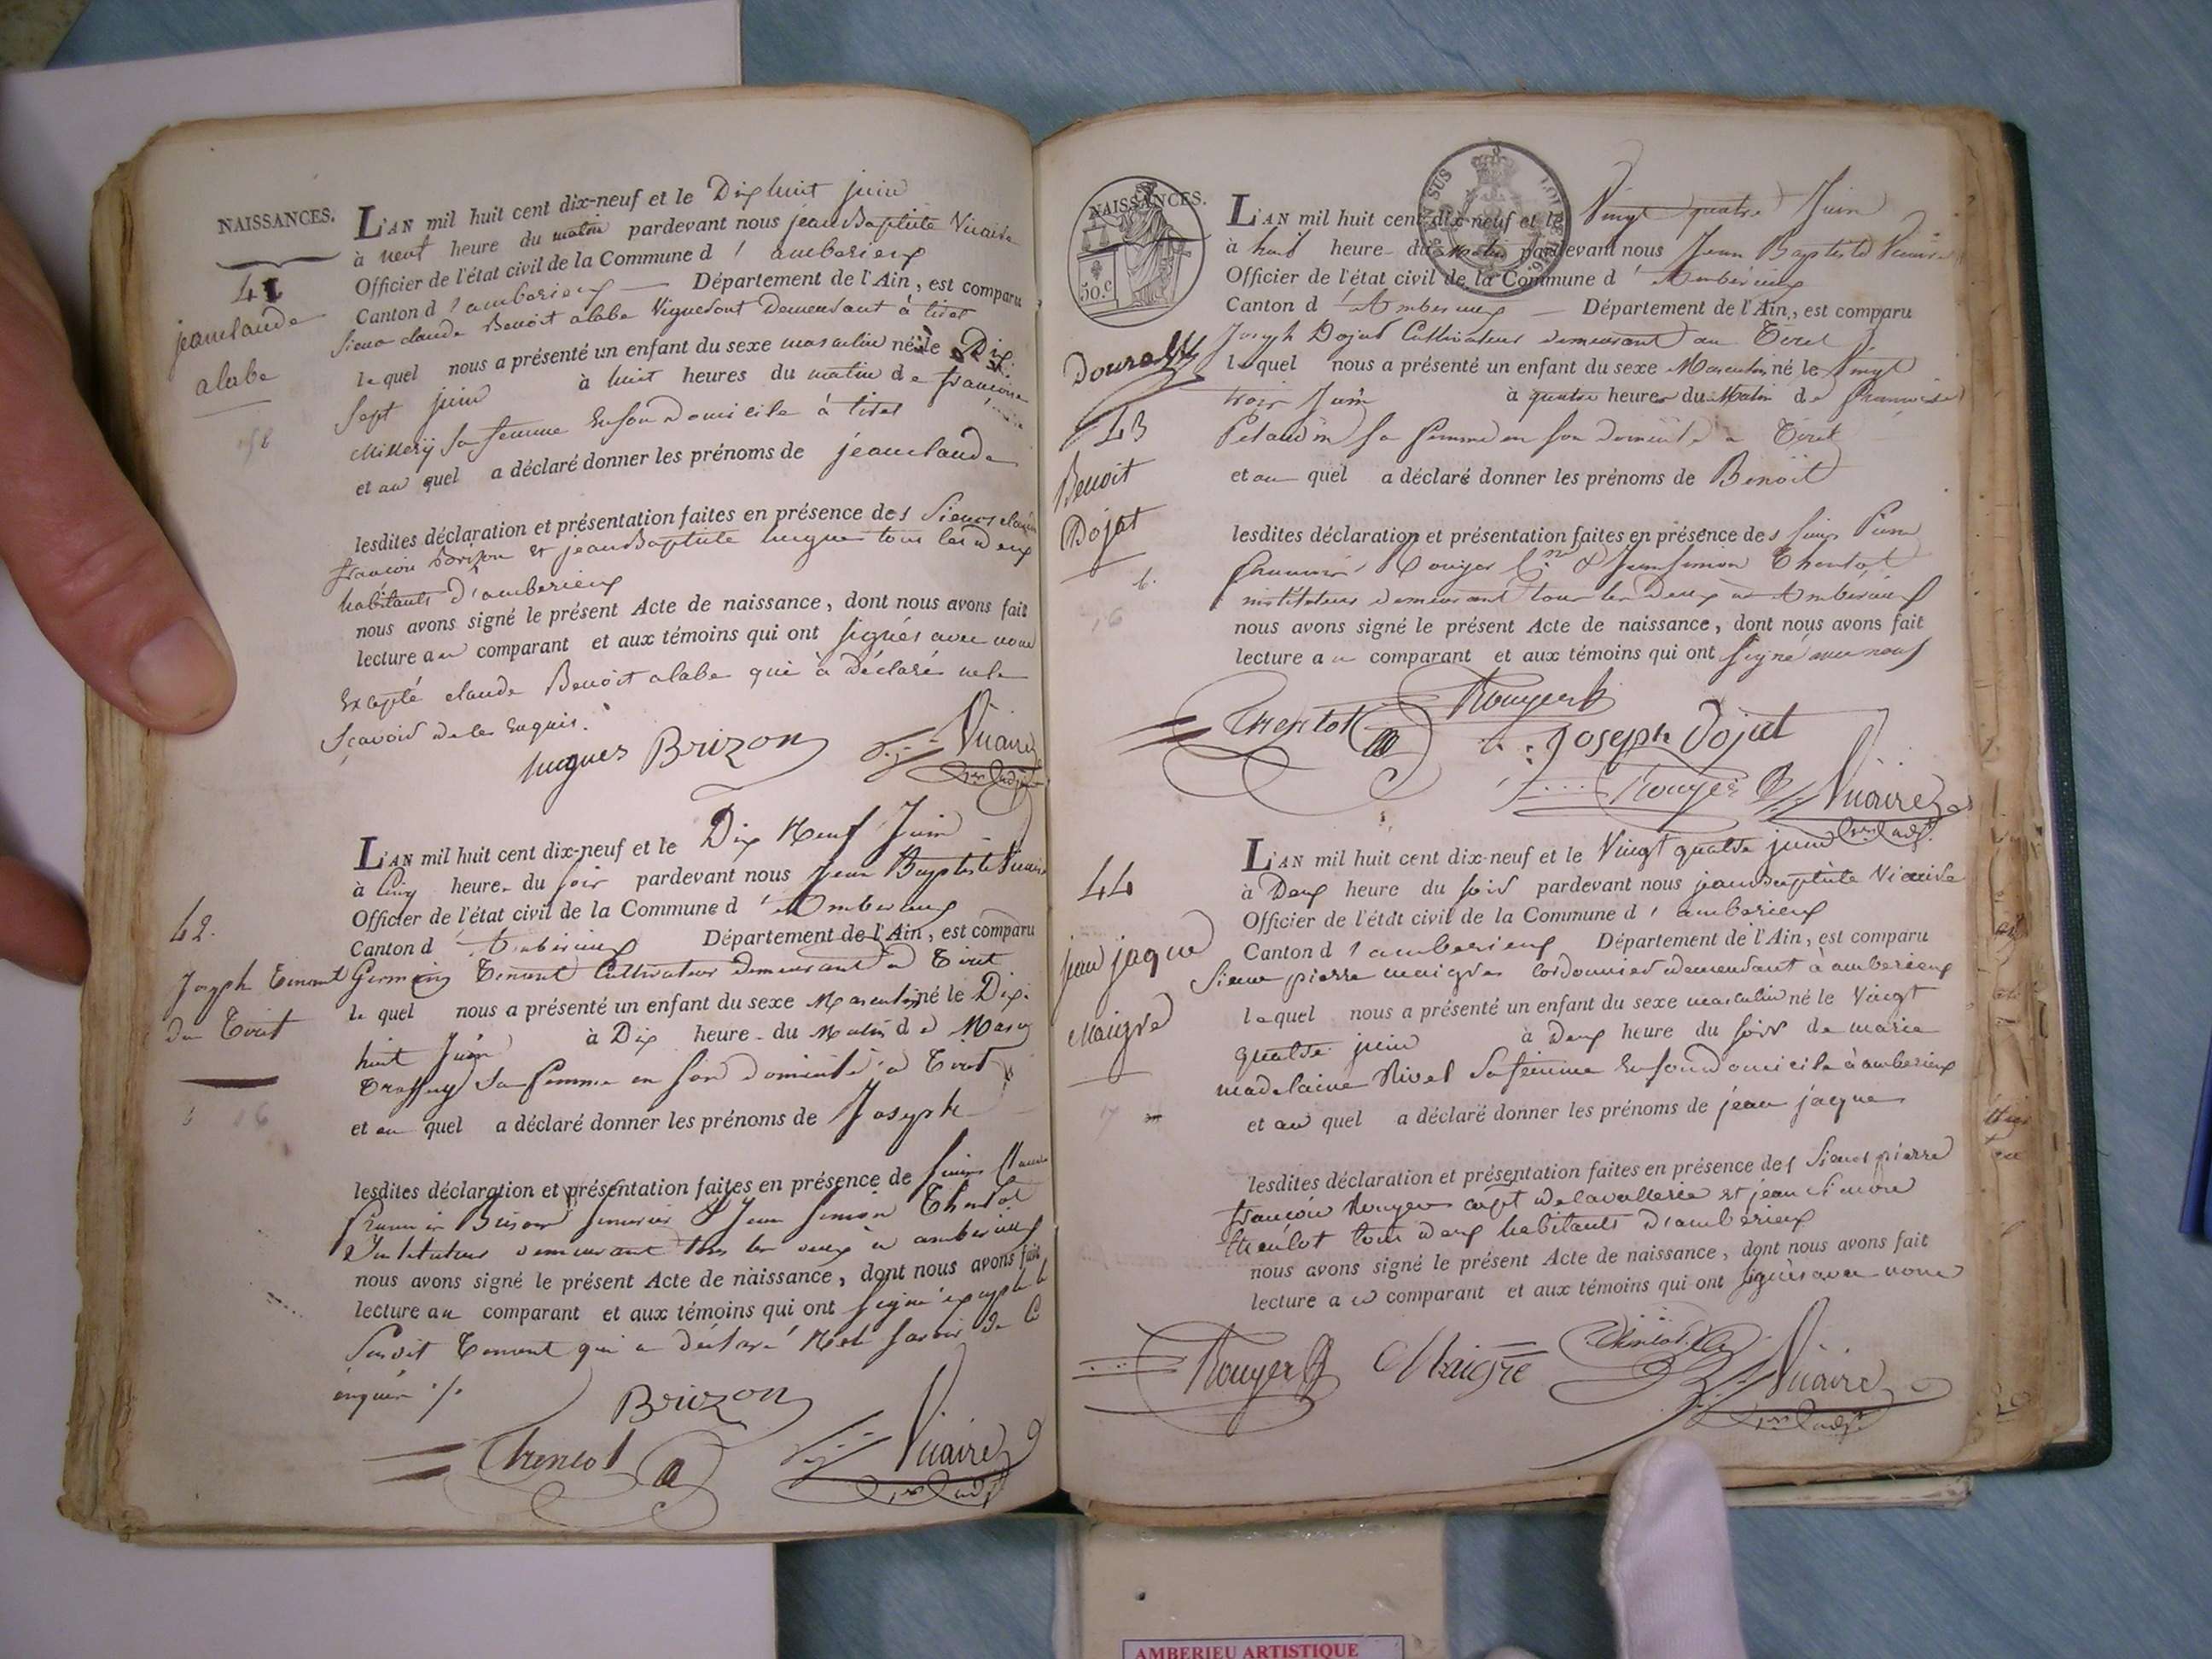 NAISSANCES.
41
jeanclaude
alabe
L'AN mil huit cent dix-neuf et le Dix huit juin
à neuf heure du matin pardevant nous jean Baptiste Vicaire
Officier de l'état civil de la Commune d'amberieux
Canton d'amberieux Département de l'Ain, est comparu
Sieur claude Benoit alabe Vigneront Demeurant à tiret
lequel nous a présenté un enfant du sexe masculin né le Dix
Sept juin à huit heures du matin de francoise
Millery sa femme En son Domicile à tiret
et au quel a déclaré donner les prénoms de jeanclaude
lesdites déclaration et présentation faites en présence des Sieurs claude
francois Brizon et jean Baptiste hugues tous les deux
habitants d'amberieux
nous avons signé le présent Acte de naissance, dont nous avons fait
lecture au comparant et aux témoins qui ont signés avec nous
Excepté claude Benoit alabe qui à Déclaré ne le
sçavoir de ce Enquis.
hugues Brizon Vicaire
42.
Joseph Tenant
du Tiret
L'AN mil huit cent dix-neuf et le Dix Neuf Juin
à Cinq heure du soir pardevant nous Jean Baptiste Vicaire
Officier de l'état civil de la Commune d'Amberieux
Canton d'Amberieux Département de l'Ain, est comparu
Germain Tenant Cultivateur demeurant à Tiret
le quel nous a présenté un enfant du sexe Masculin né le Dix
huit Juin à Dix heure du Matin de
sa femme en son domicile à Tiret
et au quel a déclaré donner les prénoms de Joseph
lesdites déclaration et présentation faites en présence de sieurs Claude
& Jean Simon Thentot
Instituteur demeurant tous les deux à amberieux
nous avons signé le présent Acte de naissance, dont nous avons fait
lecture au comparant et aux témoins qui ont signé excepté le
Tenant qui a déclaré ne le savoir de ce
enquis ./.
Brizon
Thentot Vicaire
NAISSANCES.
50.c
43
Benoit
Dojat
L'AN mil huit cent dix-neuf et le Vingt quatre Juin
à huit heure du Matin pardevant nous Jean Baptiste Vicaire
Officier de l'état civil de la Commune d'Ambérieux
Canton d'Amberieux Département de l'Ain, est comparu
Joseph Dojat Cultivateur demeurant au Tiret
lequel nous a présenté un enfant du sexe Masculin né le Vingt
trois Juin à quatre heures du Matin de francoise
sa femme en son domicile à Tiret
et au quel a déclaré donner les prénoms de Benoit
lesdites déclaration et présentation faites en présence des sieurs Pierre
francois Rouyer & Jean Simon Thentot
instituteur demeurant tous les deux à Ambérieux
nous avons signé le présent Acte de naissance, dont nous avons fait
lecture au comparant et aux témoins qui ont signé avec nous
Thentot Rouyer
Joseph Dojat
Rouyer Vicaire
44
jean jaque
Maigre
L'AN mil huit cent dix-neuf et le Vingt quatre juin
à Deux heure du soir pardevant nous jean Baptiste Vicaire
Officier de l'état civil de la Commune d'amberieux
Canton d'amberieux Département de l'Ain, est comparu
Sieur pierre maigre Cordonnier demeurant à amberieux
lequel nous a présenté un enfant du sexe masculin né le Vingt
quatre juin à Deux heure du soir de marie
madelaine Nivet sa femme En son Domicile à amberieux
et au quel a déclaré donner les prénoms de jean jaque
lesdites déclaration et présentation faites en présence des Sieurs pierre
francois Rouyer capt de cavallerie et jean Simon
thentot tous deux habitants d'amberieux
nous avons signé le présent Acte de naissance, dont nous avons fait
lecture au comparant et aux témoins qui ont signés avec nous
Rouyer Maigre Thentot Vicaire
AMBERIEU ARTISTIQUE